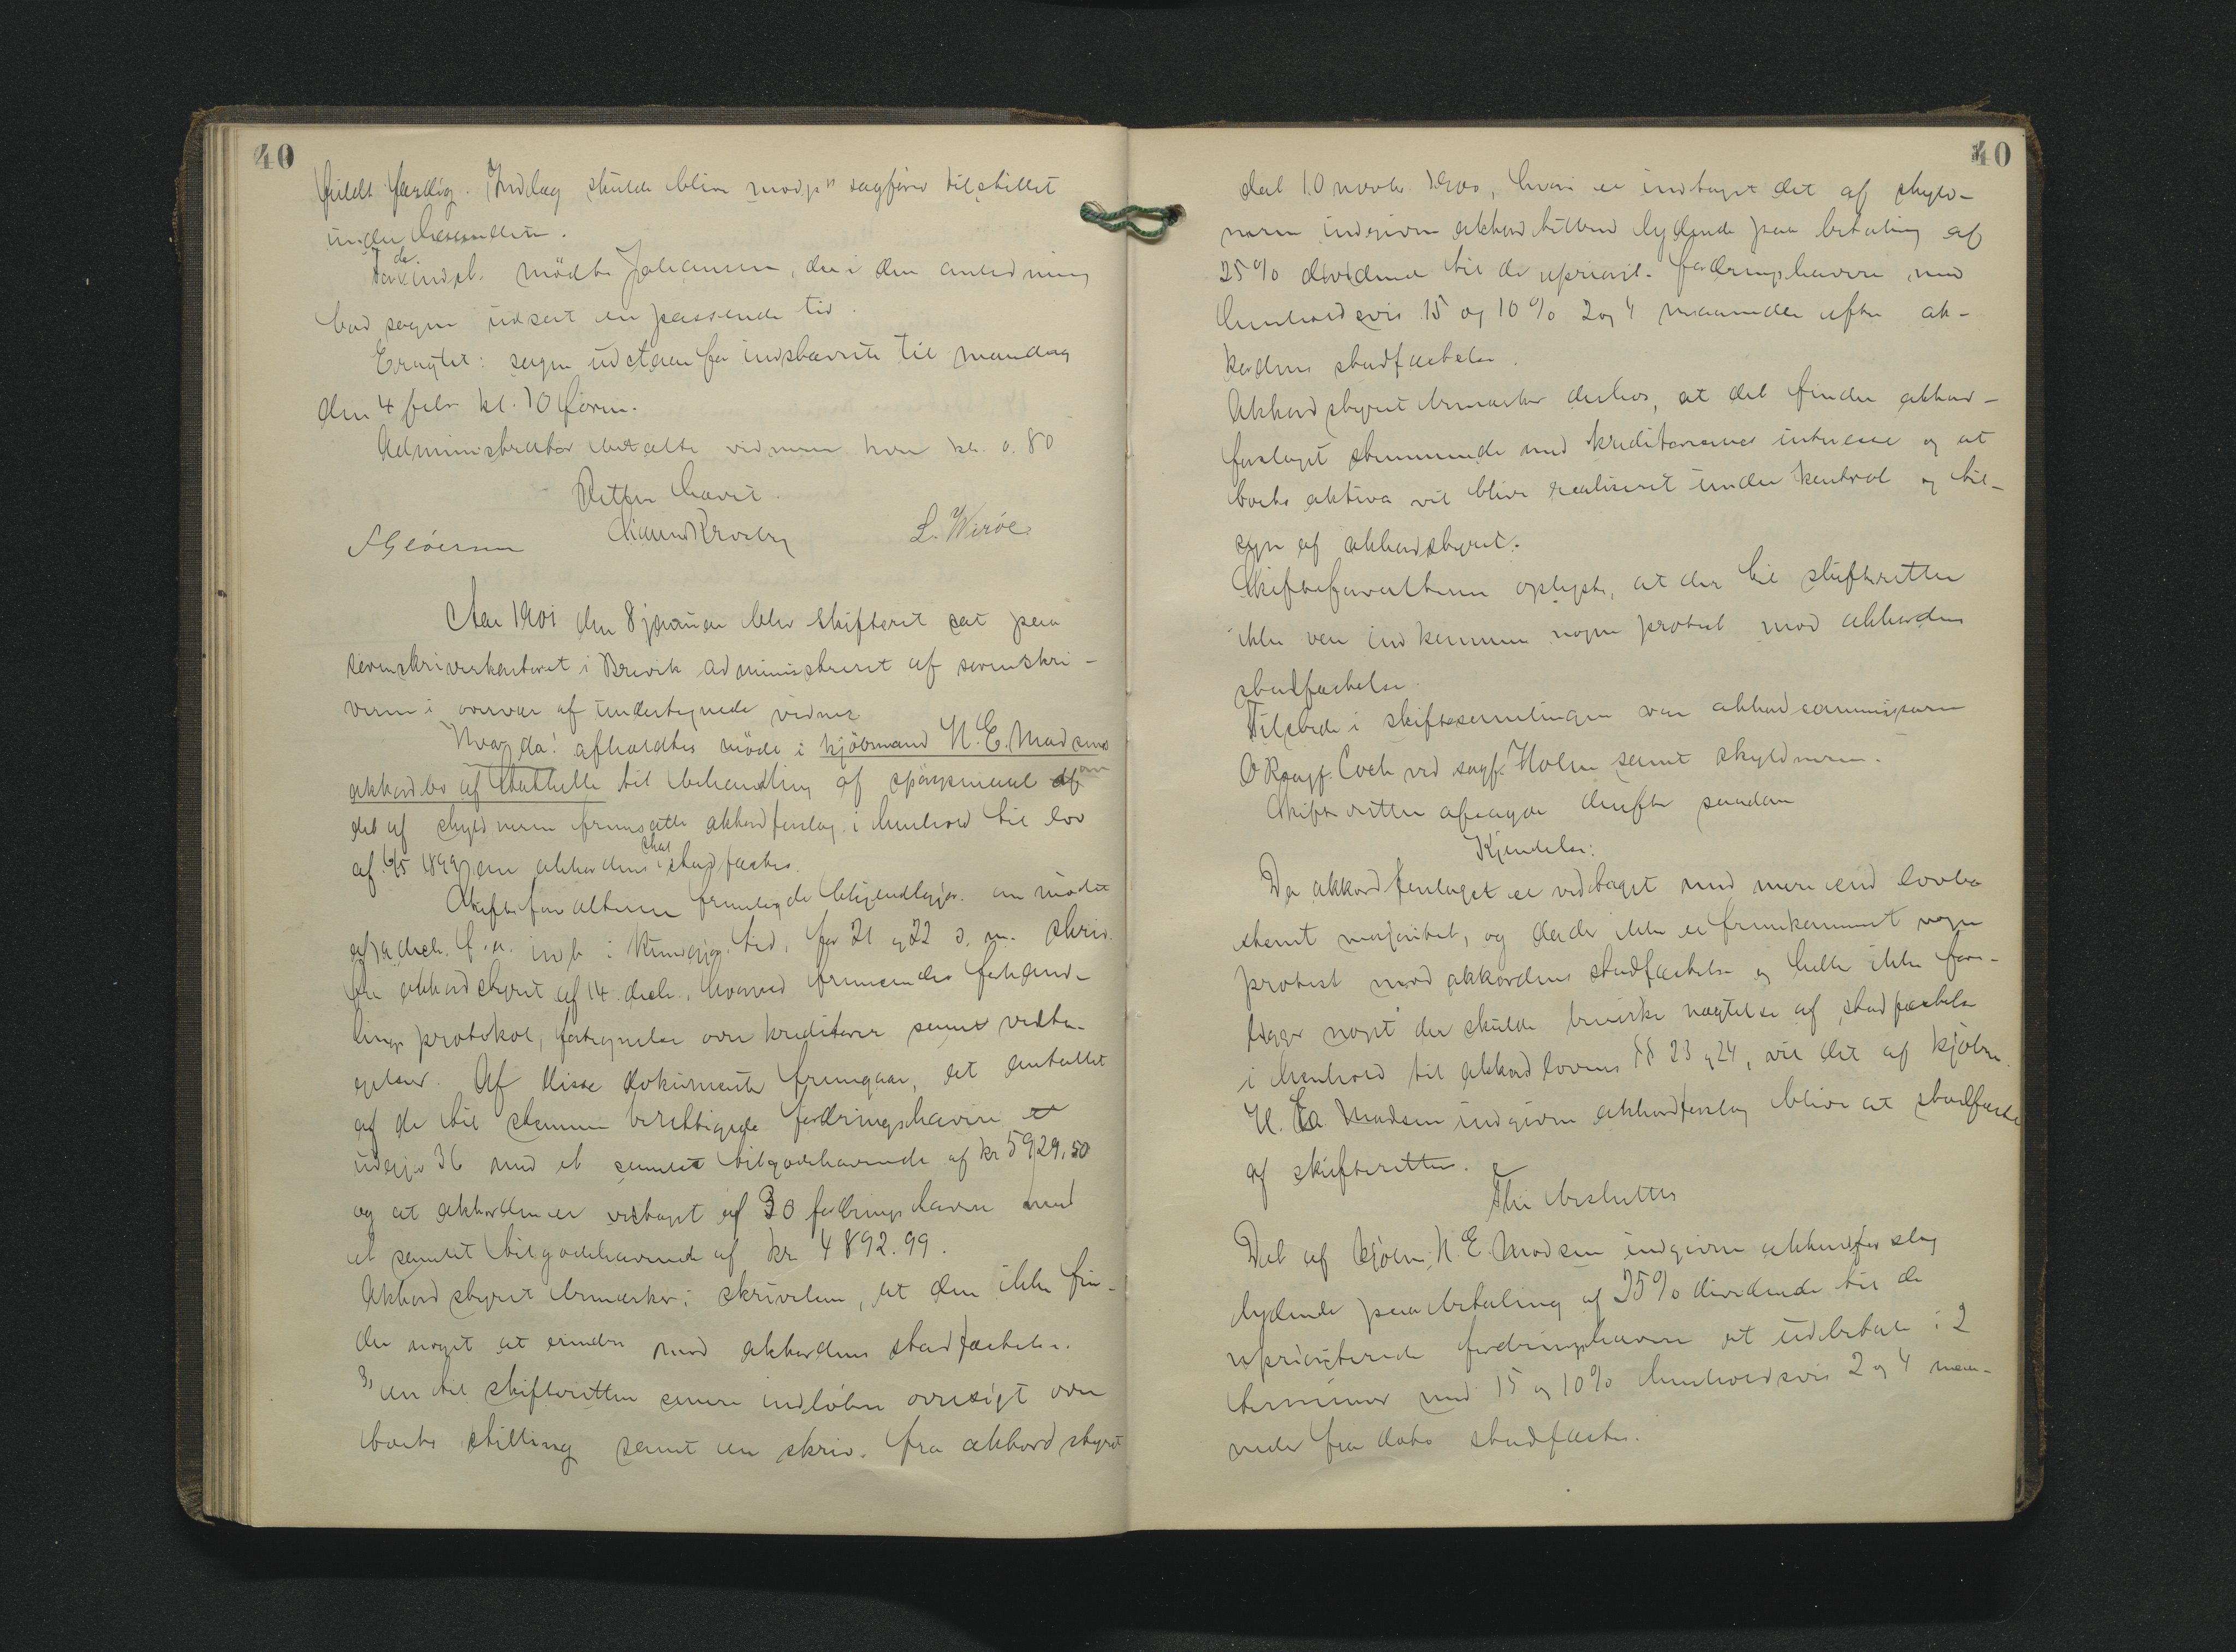 40
fuldt færdig. Indlæg skulde blive modp's sagfører tilstillet
under hævendelsen.
For da indst. mødte Johansen, der i den anledning
bad sagen udsat en passende tid.
Eragtet: sagen udstaar for indstævnte til mandag
den 4 febr kl. 10 form.
Administrator betalte vidnerne hver kr. 0.80
Retten hævet.
L. Wirøe
Aar 1901 den 8 januar blev skifteret sat paa
sorenskriverkontoret i Brevik administreret af sorenskri-
veren i overvær af undertegnede vidner
Hvorda: afholdtes møde i kjøbmand N. E. Madsens
akkordbo af Stathelle til behandling af spørgsmaal af om
det af skyldneren fremsatte akkordforslag i henhold til lov
af 6/5 1899 om akkordens skal stadfæstes.
Skifteforvalteren fremlagde bekjendtgjør. om mødet
af decb. f. a. indt. i Kundgjør. tid. for 21 og 22 s. m. skriv.
fra akkordstyret af 14 decb., hvorved fremsendes forhand-
lings protokol, fortegnelse over kreditorer samt vedta-
gelser. Af disse dokumenter fremgaar, at antallet
af de til stemme berettigede fordringshavere er
udgjør 36 med et samlet tilgodehavende af kr 5929,50
og at akkorden er vedtaget af 30 fordringshavere med
et samlet tilgodehavende af kr 4892.99.
Akkordstyret bemærker i skrivelsen, at den ikke fin-
der noget at erindre mod akkordens stadfæstelse.
3, en til skifteretten senere indløben oversigt over
boets stilling samt en skriv. fra akkordstyret
40
dat 10 novbr. 1900, hvori er indtaget det af skyld-
neren indgivne akkordtilbud lydende paa betaling af
25% dividende til de upriorit. fordringshavere med
henholdsvis 15 og 10% 2 og 4 maaneder efter ak-
kordens stadfæstelse.
Akkordstyret bemærker derhos, at det finder akkord-
forslaget stemmende med kreditorernes interesse og at
boets aktiva vil blive realiseret under kontrol og til-
syn af akkordstyret.
Skifteforvalteren oplyste, at der til skifteretten
ikke var indkommen nogen protest mod akkordens
stadfæstelse.
Tilstede i skiftesamlingen var akkordcommissæren
O Rsagf. Coch ved sagf. Holm samt skyldneren.
Skifteretten afsagde derefter saadan
Kjendelse:
Da akkordforslaget er vedtaget med mere end lovbe
stemt majoritet, og da der ikke er fremkommet nogen
protest mod akkordens stadfæstelse og heller ikke fore-
ligger noget der skulde bevirke nægtelse af stadfæstelse
i henhold til akkordlovens §§ 23 og 24, vil det af kjøbm.
N. E. Madsen indgivne akkordforslag blive at stadfæste
af skifteretten.
Thi besluttes
Det af kjøbm. N. E. Madsen indgivne akkordforslag
lydende paa betaling af 25% dividende til de
uprioriterede fordringshavere at udbetale i 2
terminer med 15 og 10% henholdsvis 2 og 4 maa-
neder fra dato stadfæstes.